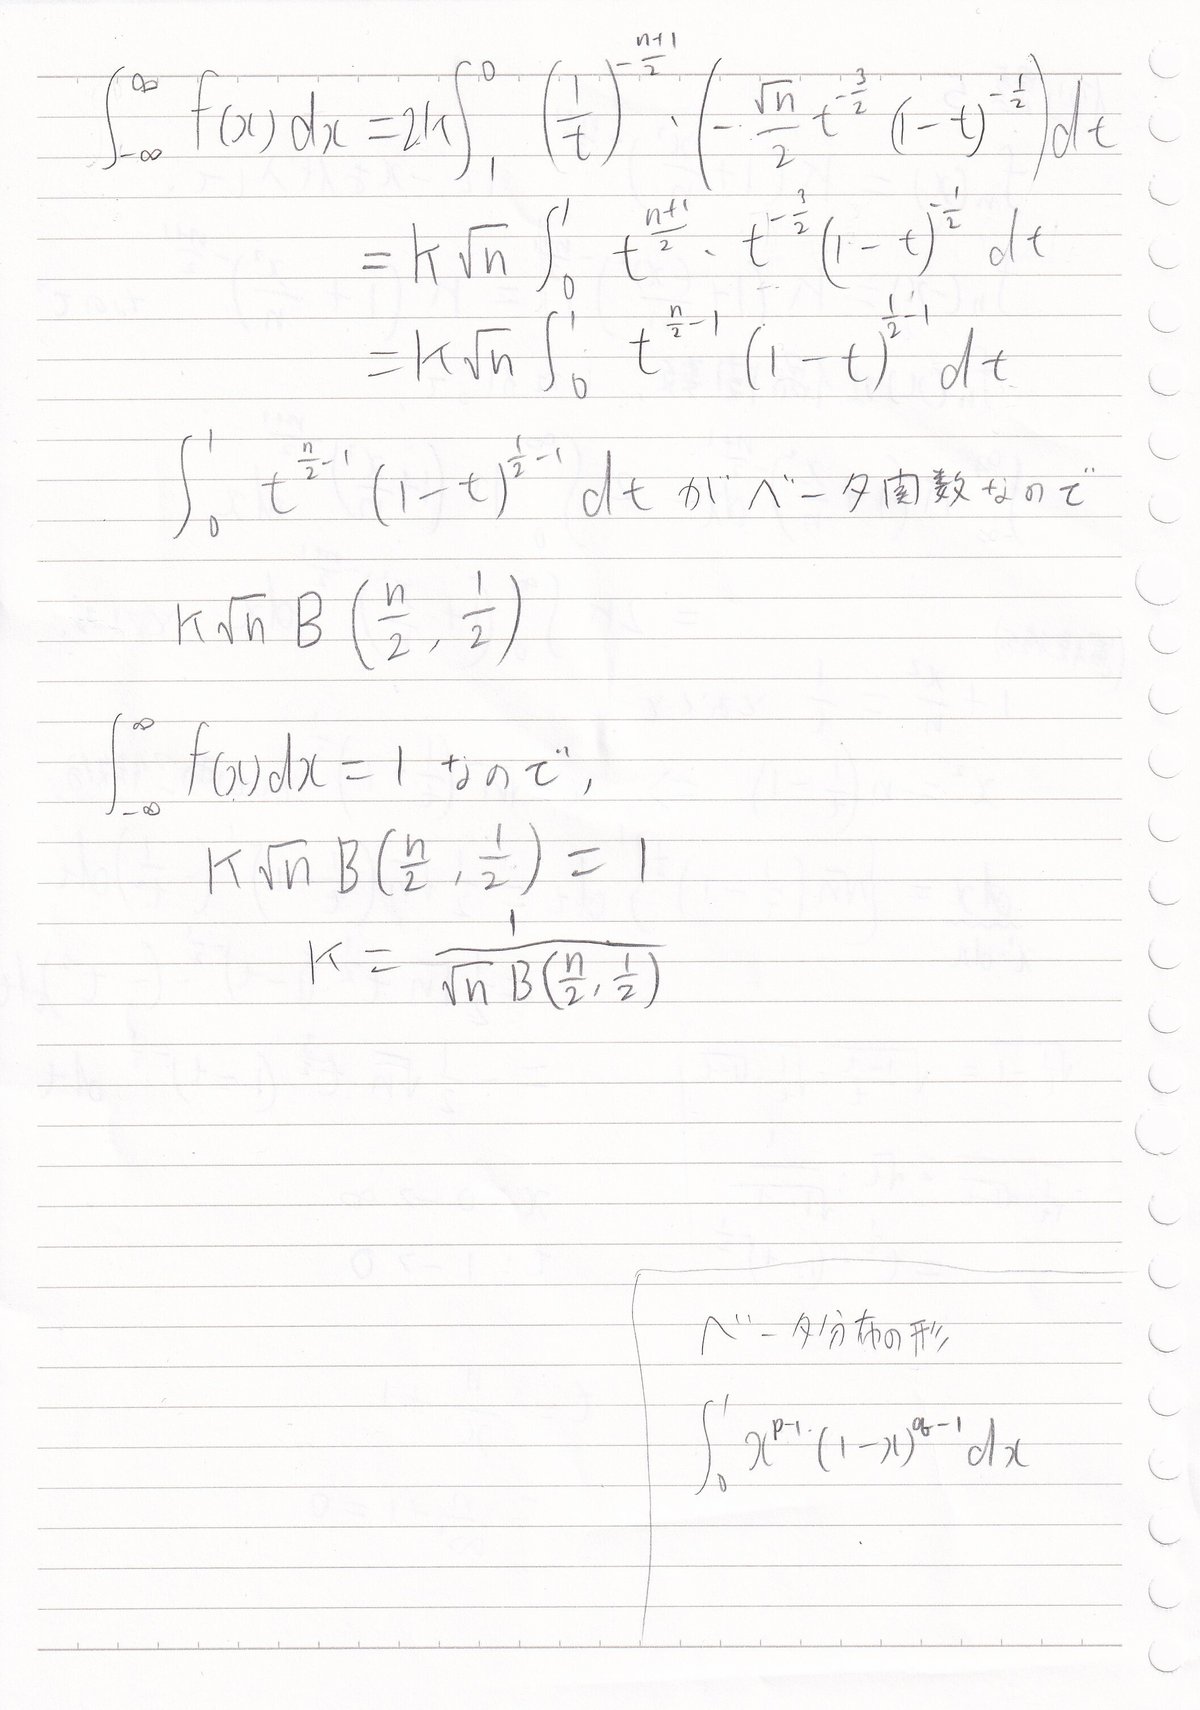 ∫_{-∞}^{∞} f(x)dx = 2k∫_{1}^{0} (1/t)^{-\frac{n+1}{2}} · (-\frac{√n}{2} t^{-\frac{3}{2}} (1-t)^{-\frac{1}{2}}) dt
= k√n ∫_{0}^{1} t^{\frac{n+1}{2}} · t^{-\frac{3}{2}} (1-t)^{-\frac{1}{2}} dt
= k√n ∫_{0}^{1} t^{\frac{n}{2}-1} (1-t)^{\frac{1}{2}-1} dt
∫_{0}^{1} t^{\frac{n}{2}-1} (1-t)^{\frac{1}{2}-1} dt がベータ関数なので
k√n B(\frac{n}{2}, \frac{1}{2})
∫_{-∞}^{∞} f(x)dx = 1 なので,
k√n B(\frac{n}{2}, \frac{1}{2}) = 1
k = \frac{1}{√n B(\frac{n}{2}, \frac{1}{2})}
ベータ分布の形
∫_{0}^{1} x^{p-1} (1-x)^{q-1} dx